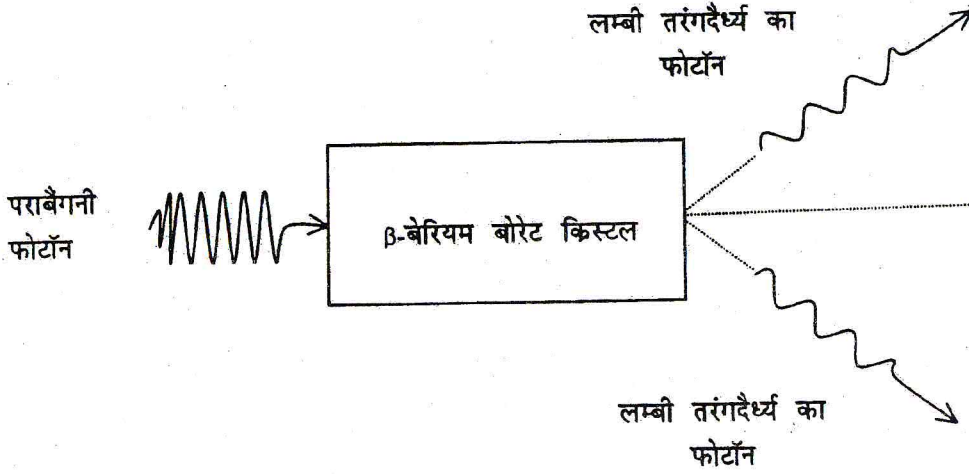 लम्बी तरंगदैर्ध्य का
फोटॉन
पराबैंगनी
फोटॉन
β-बेरियम बोरेट क्रिस्टल
लम्बी तरंगदैर्ध्य का
फोटॉन